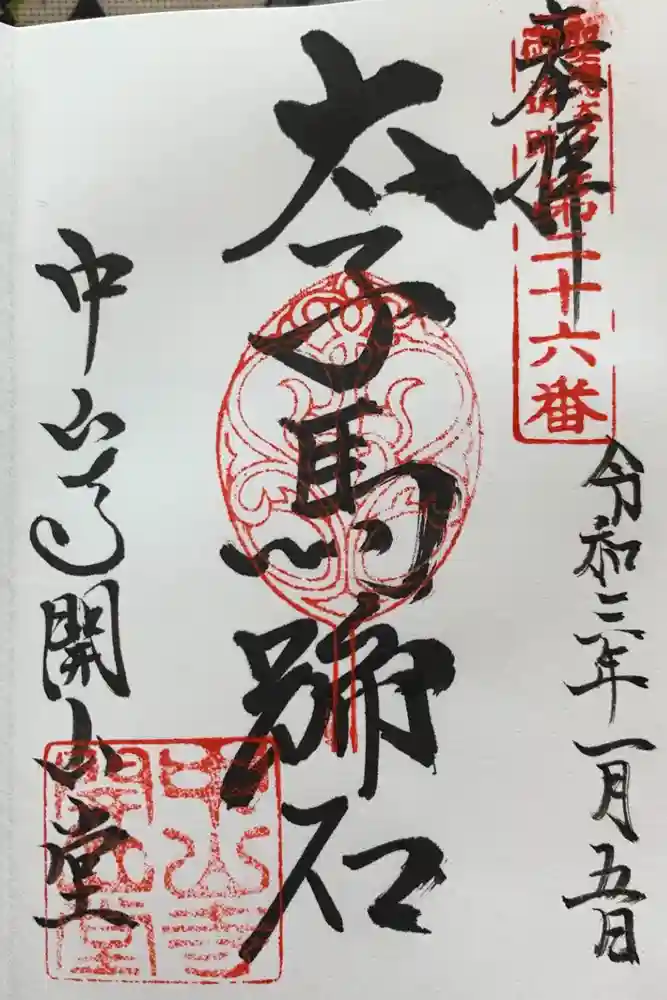 奉拝
第二十六番
令和三年一月五日
太子馬蹄石
中山寺開山堂
中山寺
開山堂